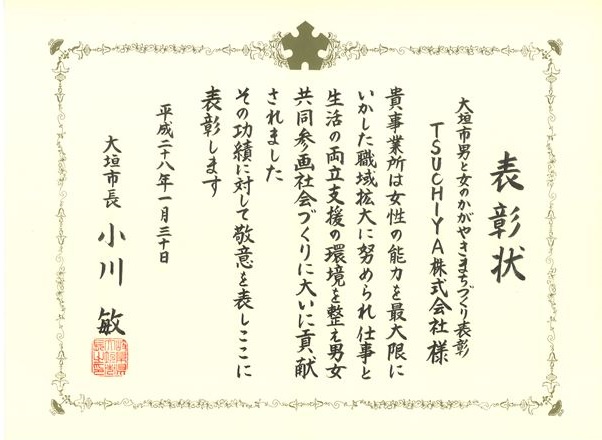 表彰状
大垣市男と女のかがやきまちづくり表彰
TSUCHIYA株式会社 様
貴事業所は女性の能力を最大限に
いかした職域拡大に努められ仕事と
生活の両立支援の環境を整え男女
共同参画社会づくりに大いに貢献
されました
その功績に対して敬意を表しここに
表彰します
平成二十八年一月三十日
大垣市長 小川 敏